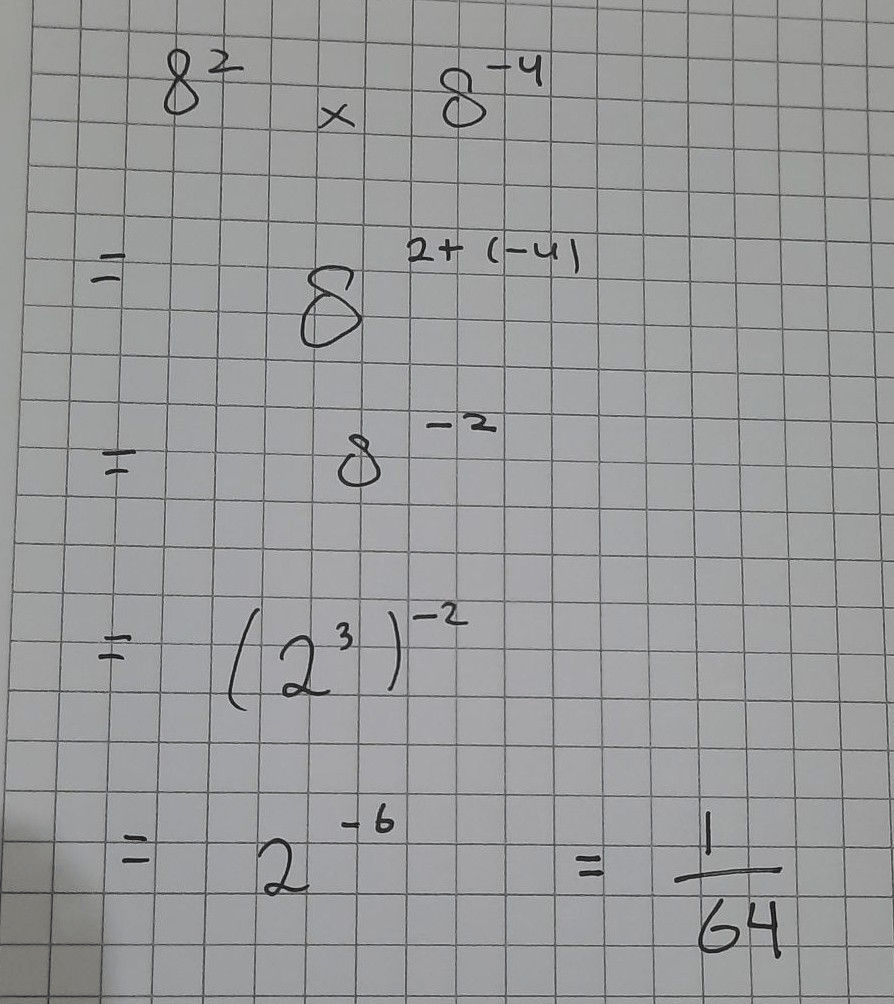 8² × 8⁻⁴
= 8²⁺⁽⁻⁴⁾
= 8⁻²
= (2³)⁻²
= 2⁻⁶ = 1/64